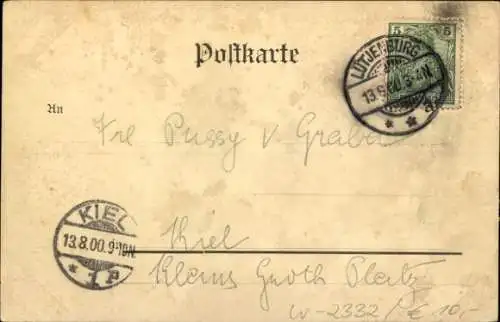 Postkarte
5 5
LÜTJENBURG
13.8.00.3-4N.
* *
An
Frl Pussy v. Graba
KIEL
13.8.00.9-10N.
* 1 P
Kiel
Klaus Groth Platz
W-2332 / € 10,-